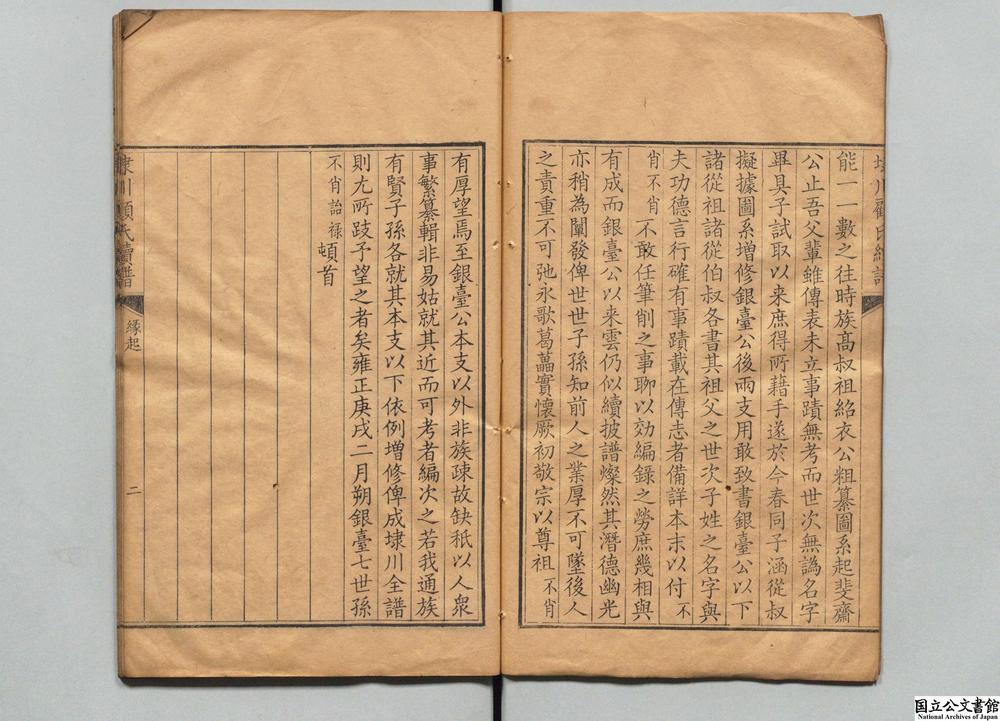 能一一數之往時族高叔祖絅衣公粗纂圖系起斐齋
公止吾父輩雖傳表未立事蹟無考而世次無譌名字
畢具予試取以来庶得所藉手遂於今春同子涵從叔
擬據圖系增修銀臺公後兩支用敢致書銀臺公以下
諸從祖諸從伯叔各書其祖父之世次子姓之名字與
夫功德言行確有事蹟載在傳志者備詳本末以付不
肖不肖不敢任筆削之事聊以効編錄之勞庶幾相與
有成而銀臺公以来雲仍似續披譜燦然其潛德幽光
亦稍為闡發俾世世子孫知前人之業厚不可墜後人
之責重不可弛永歌葛藟實懷厥初敬宗以尊祖不肖
有厚望焉至銀臺公本支以外非族疎故缺秪以人衆
事繁纂輯非易姑就其近而可考者編次之若我通族
有賢子孫各就其本支以下依例增修俾成埭川全譜
則尤所跂予望之者矣雍正庚戌二月朔銀臺七世孫
不肖詒祿頓首
埭川顧氏續譜
緣起
二
国立公文書館
National Archives of Japan